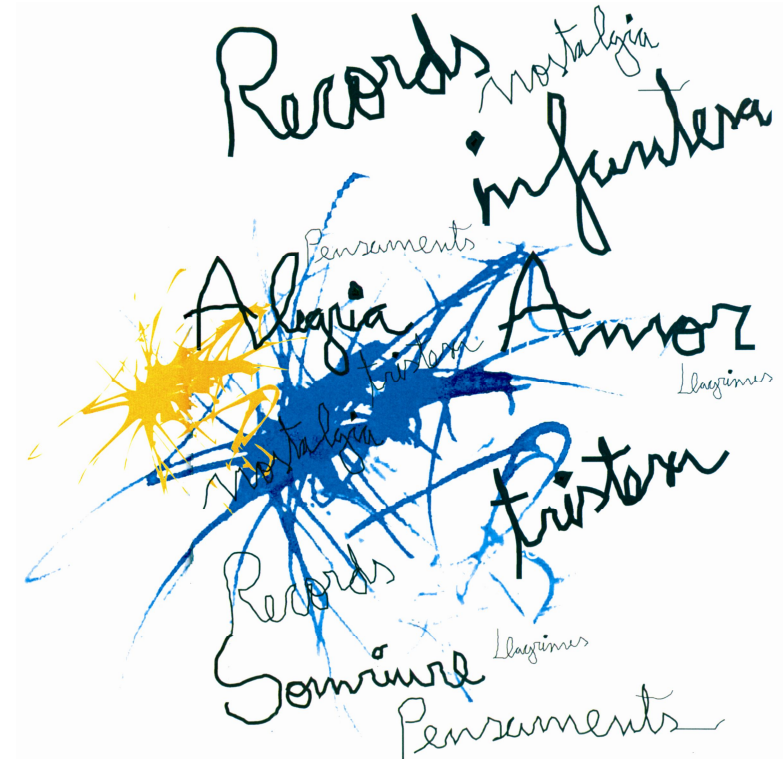 Records
nostalgia
infantesa
Pensaments
Alegria
Amor
tristesa
Llagrimes
nostalgia
tristesa
Records
Llagrimes
Somriure
Pensaments